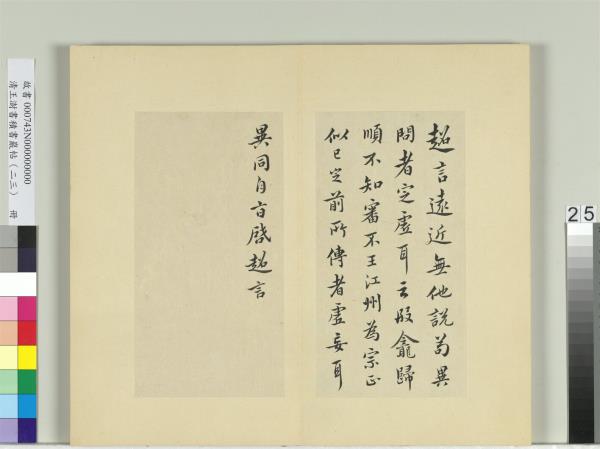 超言遠近無他說苟異
問者定虛耳云殷龕歸
順不知審不王江州為宗正
似已定前所傳者虛妄耳
異同自旨啓超言
故書 000743N000000000
清王澍書積書巖帖(二三) 冊
25